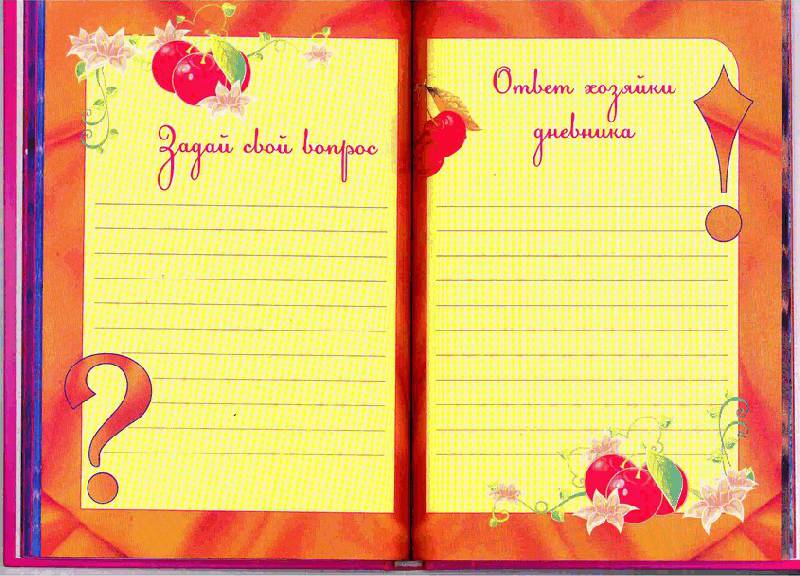 Задай свой вопрос
Ответ хозяйки
дневника